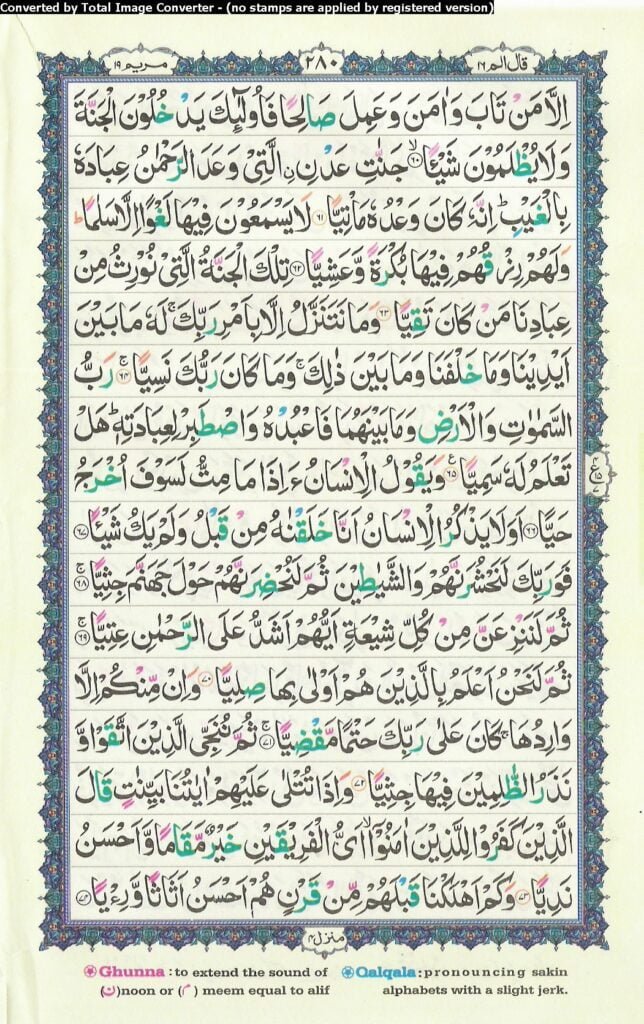 Converted by Total Image Converter - (no stamps are applied by registered version)
قال الم ۱۶
۲۸۰
مریم ۱۹
اِلَّا مَنْ تَابَ وَاٰمَنَ وَعَمِلَ صَالِحًا فَاُولٰٓئِكَ يَدْخُلُوْنَ الْجَنَّةَ
وَلَا يُظْلَمُوْنَ شَيْـًٔا ۙ﴿۶۰﴾ جَنّٰتِ عَدْنِ ِۨالَّتِيْ وَعَدَ الرَّحْمٰنُ عِبَادَهٗ
بِالْغَيْبِ ؕ اِنَّهٗ كَانَ وَعْدُهٗ مَاْتِيًّا ﴿۶۱﴾ لَا يَسْمَعُوْنَ فِيْهَا لَغْوًا اِلَّا سَلٰمًا ؕ
وَلَهُمْ رِزْقُهُمْ فِيْهَا بُكْرَةً وَّعَشِيًّا ﴿۶۲﴾ تِلْكَ الْجَنَّةُ الَّتِيْ نُوْرِثُ مِنْ
عِبَادِنَا مَنْ كَانَ تَقِيًّا ﴿۶۳﴾ وَمَا نَتَنَزَّلُ اِلَّا بِاَمْرِ رَبِّكَ ۚ لَهٗ مَا بَيْنَ
اَيْدِيْنَا وَمَا خَلْفَنَا وَمَا بَيْنَ ذٰلِكَ ۚ وَمَا كَانَ رَبُّكَ نَسِيًّا ۚ﴿۶۴﴾ رَبُّ
السَّمٰوٰتِ وَالْاَرْضِ وَمَا بَيْنَهُمَا فَاعْبُدْهُ وَاصْطَبِرْ لِعِبَادَتِهٖ ؕ هَلْ
تَعْلَمُ لَهٗ سَمِيًّا ﴿۶۵﴾ ع وَيَقُوْلُ الْاِنْسَانُ ءَاِذَا مَا مِتُّ لَسَوْفَ اُخْرَجُ
حَيًّا ﴿۶۶﴾ اَوَلَا يَذْكُرُ الْاِنْسَانُ اَنَّا خَلَقْنٰهُ مِنْ قَبْلُ وَلَمْ يَكُ شَيْـًٔا ﴿۶۷﴾
فَوَرَبِّكَ لَنَحْشُرَنَّهُمْ وَالشَّيٰطِيْنَ ثُمَّ لَنُحْضِرَنَّهُمْ حَوْلَ جَهَنَّمَ جِثِيًّا ۚ﴿۶۸﴾
ثُمَّ لَنَنْزِعَنَّ مِنْ كُلِّ شِيْعَةٍ اَيُّهُمْ اَشَدُّ عَلَى الرَّحْمٰنِ عِتِيًّا ۚ﴿۶۹﴾
ثُمَّ لَنَحْنُ اَعْلَمُ بِالَّذِيْنَ هُمْ اَوْلٰى بِهَا صِلِيًّا ﴿۷۰﴾ وَاِنْ مِّنْكُمْ اِلَّا
وَارِدُهَا ۚ كَانَ عَلٰى رَبِّكَ حَتْمًا مَّقْضِيًّا ۚ﴿۷۱﴾ ثُمَّ نُنَجِّي الَّذِيْنَ اتَّقَوْا وَّ
نَذَرُ الظّٰلِمِيْنَ فِيْهَا جِثِيًّا ﴿۷۲﴾ وَاِذَا تُتْلٰى عَلَيْهِمْ اٰيٰتُنَا بَيِّنٰتٍ قَالَ
الَّذِيْنَ كَفَرُوْا لِلَّذِيْنَ اٰمَنُوْٓا ۙ اَيُّ الْفَرِيْقَيْنِ خَيْرٌ مَّقَامًا وَّاَحْسَنُ
نَدِيًّا ﴿۷۳﴾ وَكَمْ اَهْلَكْنَا قَبْلَهُمْ مِّنْ قَرْنٍ هُمْ اَحْسَنُ اَثَاثًا وَّرِءْيًا ﴿۷۴﴾
منزل ۴
Ghunna : to extend the sound of
(ن)noon or (م) meem equal to alif
Qalqala: pronouncing sakin
alphabets with a slight jerk.